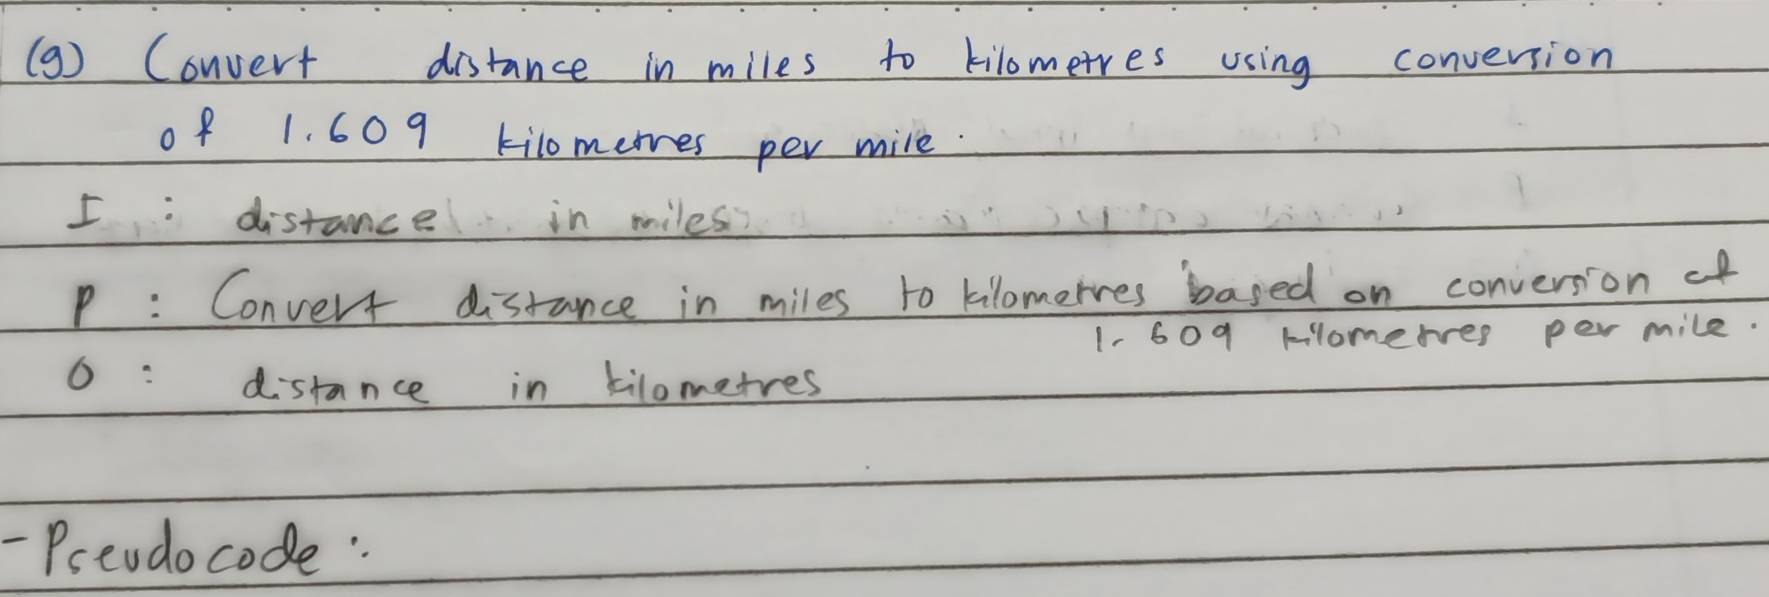 (g) Convert distance in miles to kilometres using conversion
of 1.609 kilometres per mile.
I : distance in miles
P : Convert distance in miles to kilometres based on conversion of
1.609 kilometres per mile.
O : distance in kilometres
- Pseudocode :